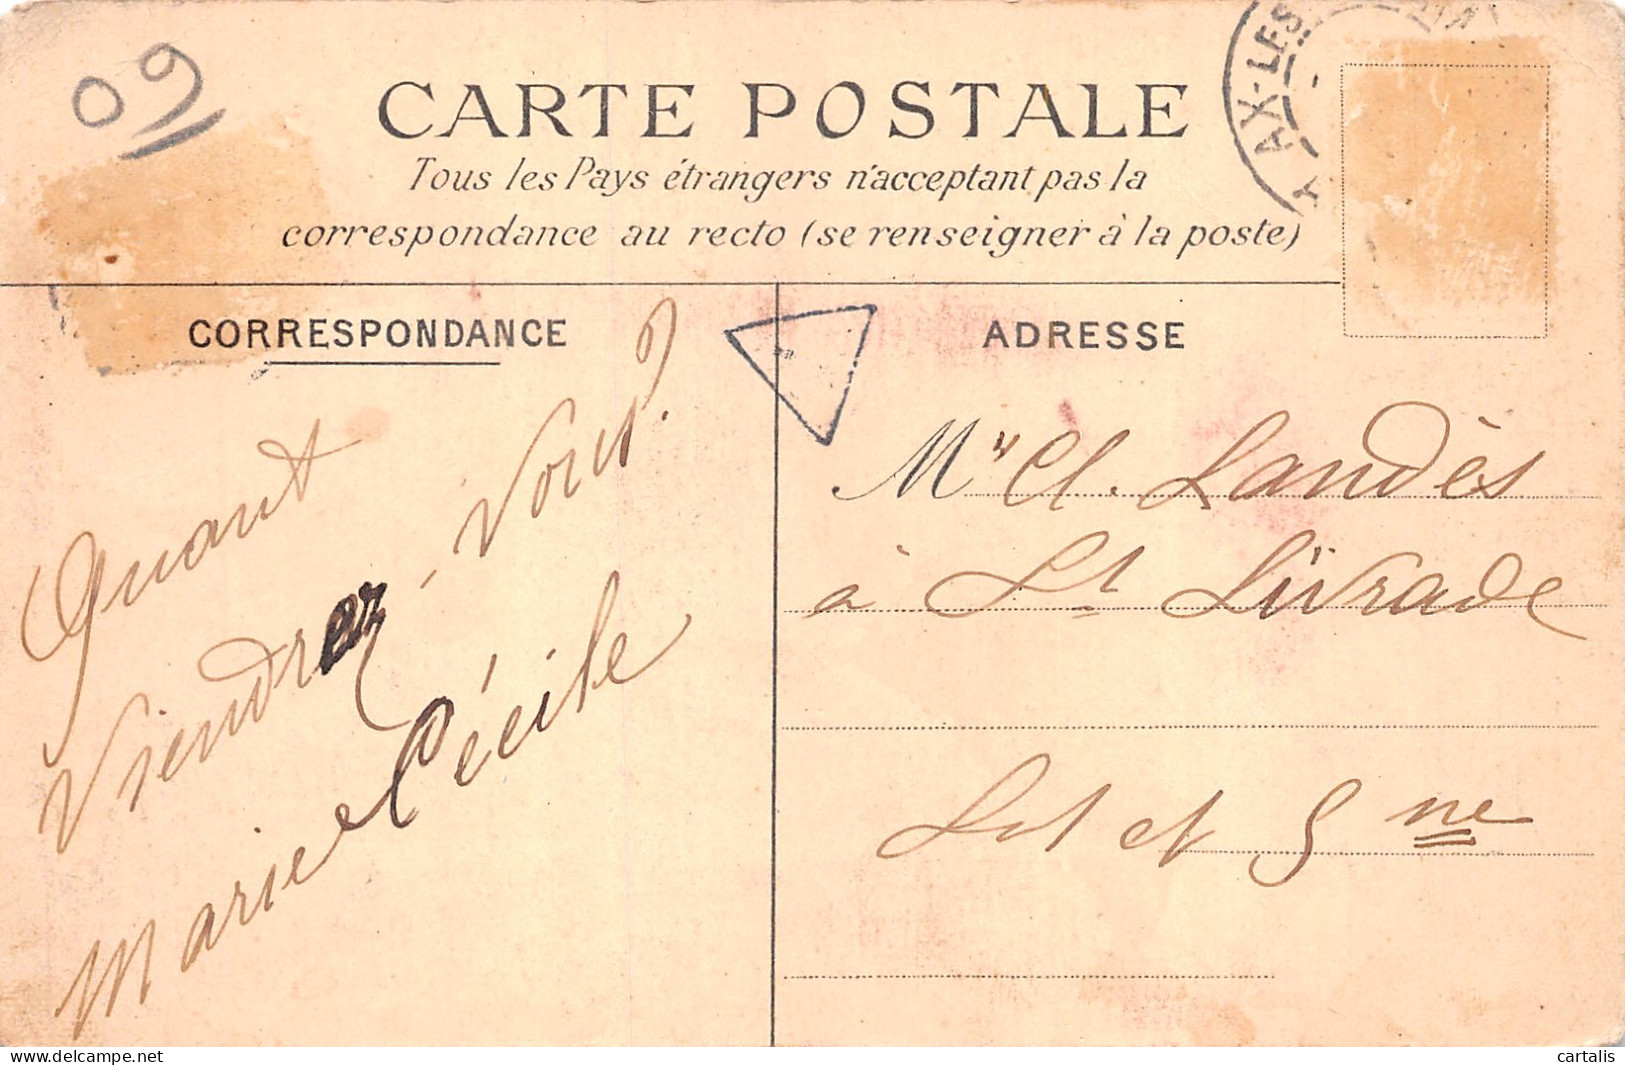 09
CARTE POSTALE
AX-LES
Tous les Pays étrangers n'acceptant pas la
correspondance au recto (se renseigner à la poste)
CORRESPONDANCE
Quant
Viendrez-vous?
Marie Cécile
ADRESSE
Mr Cl. Landès
à St Livrade
Lot et Gne
cartalis